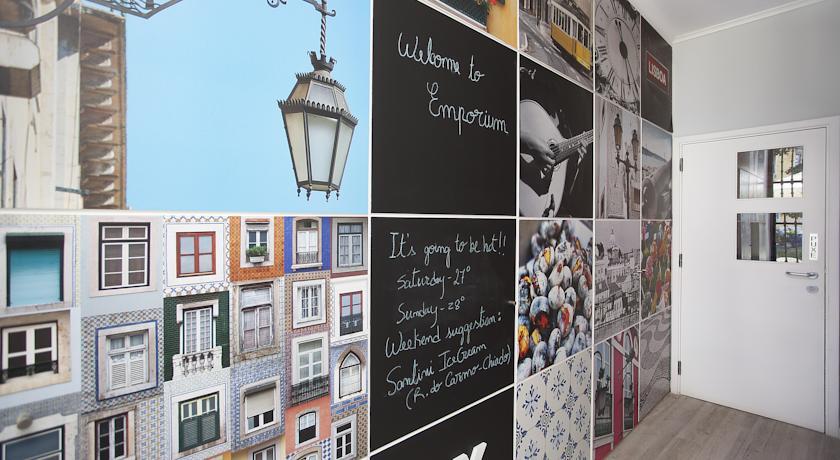 Welcome to
Emporium
LISBOA
It's going to be hot!!
Saturday - 27°
Sunday - 28°
Weekend suggestion:
Santini IceCream
(R. do Carmo-Chiado)
PUXE